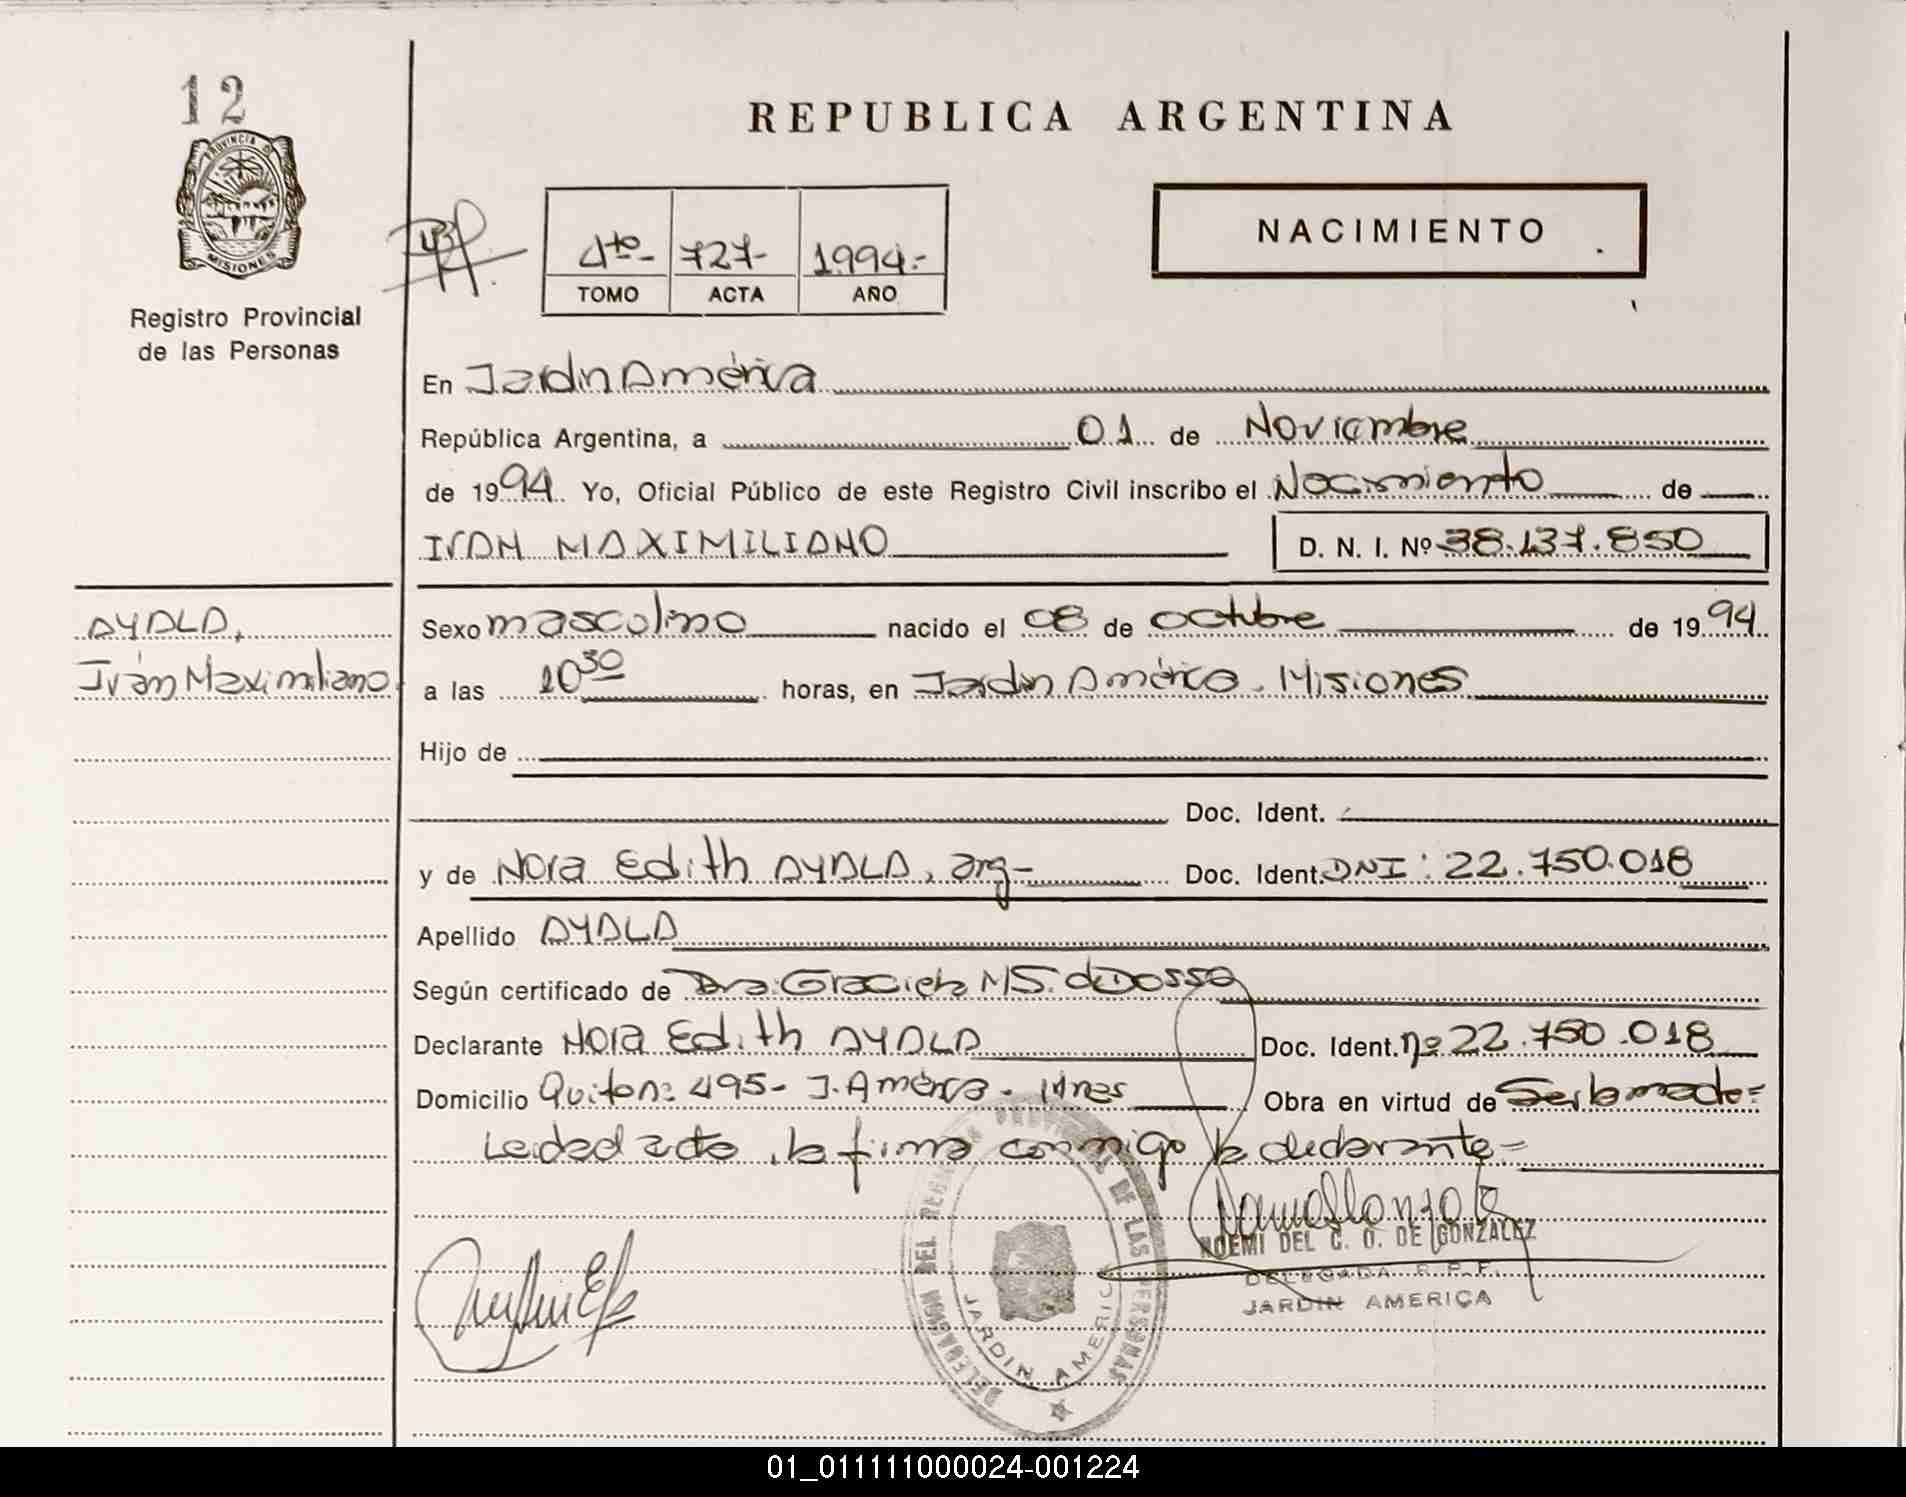 12
PROVINCIA DE
MISIONES
Registro Provincial
de las Personas
REPUBLICA ARGENTINA
4to- 727- 1994.-
TOMO ACTA AÑO
NACIMIENTO
En Jardin América
República Argentina, a 01 de Noviembre
de 1994. Yo, Oficial Público de este Registro Civil inscribo el Nacimiento de
IVAN MAXIMILIANO D. N. I. Nº 38.137.850
AYALA,
Iván Maximiliano
Sexo masculino nacido el 08 de octubre de 1994.
a las 10 30 horas, en Jardin América. Misiones
Hijo de
Doc. Ident.
y de Nora Edith AYALA, arg- Doc. Ident. DNI: 22.750.018
Apellido AYALA
Según certificado de Dra. Graciela MS. de Dosso
Declarante Nora Edith AYALA Doc. Ident. nº 22.750.018
Domicilio 495- J. América - Mnes Obra en virtud de Ser la madre=
Leída el acta, la firma conmigo la declarante=
NOEMI DEL C. O. DE GONZALEZ
DELEGADA R. P. P.
JARDIN AMERICA
DELEGACION DEL REGISTRO PROVINCIAL DE LAS PERSONAS
JARDIN AMERICA
01_011111000024-001224